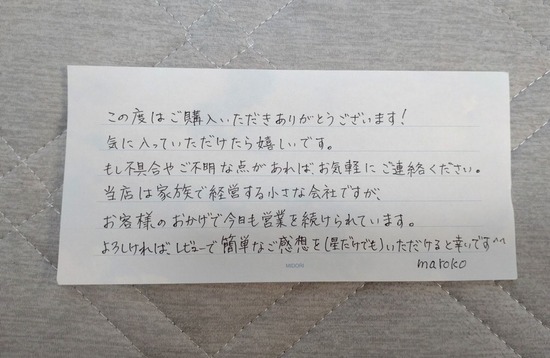 この度はご購入いただきありがとうございます!
気に入っていただけたら嬉しいです。
もし不具合やご不明な点があればお気軽にご連絡ください。
当店は家族で経営する小さな会社ですが、
お客様のおかげで今日も営業を続けられています。
よろしければ、レビューで簡単なご感想を(星だけでも)いただけると幸いです^^
MIDORI
maroko